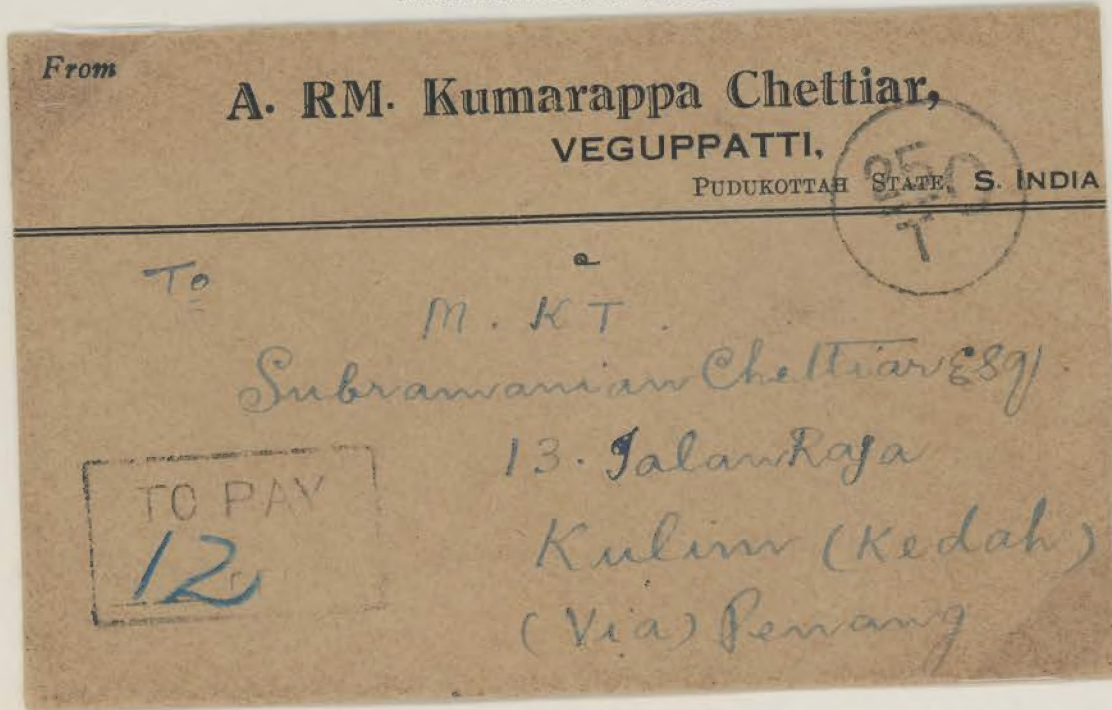 From
A. RM. Kumarappa Chettiar,
VEGUPPATTI,
PUDUKOTTAH STATE, S. INDIA
T
To
M. K T.
Subramanian Chettiar Esq.
13. Jalan Raja
Kulim (Kedah)
(Via) Penang
TO PAY
12